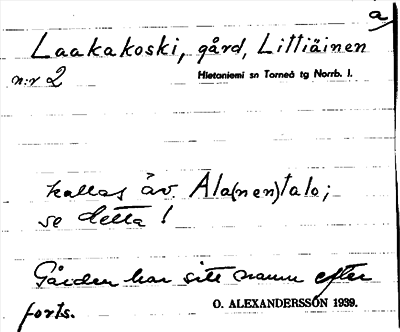 a
Laakakoski, gård, Littiäinen
n:r 2
Hietaniemi sn Torneå tg Norrb. l.
kallas äv. Ala(nen)talo;
se detta!
Gården har sitt namn efter
forts.
O. ALEXANDERSSÖN 1939.